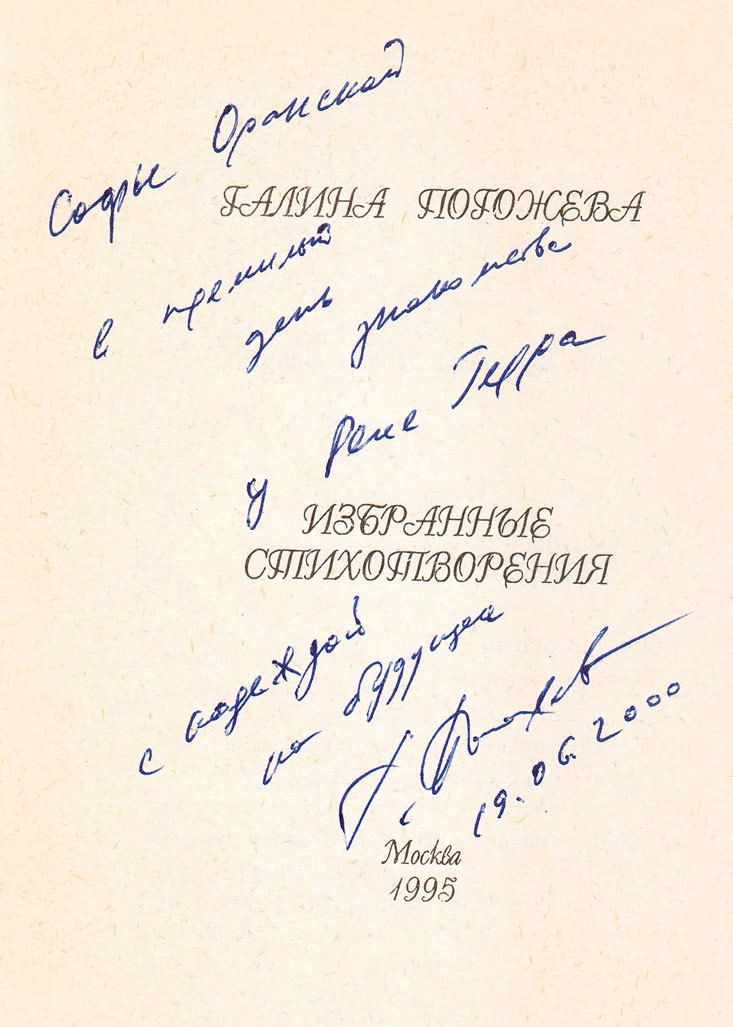 Софье Оранской
ГАЛИНА ПОГОЖЕВА
в премилый
день знакомства
у Рене Герра
ИЗБРАННЫЕ
СТИХОТВОРЕНИЯ
с надеждой
на будущее
Г. Погожева
19.06.2000
Москва
1995